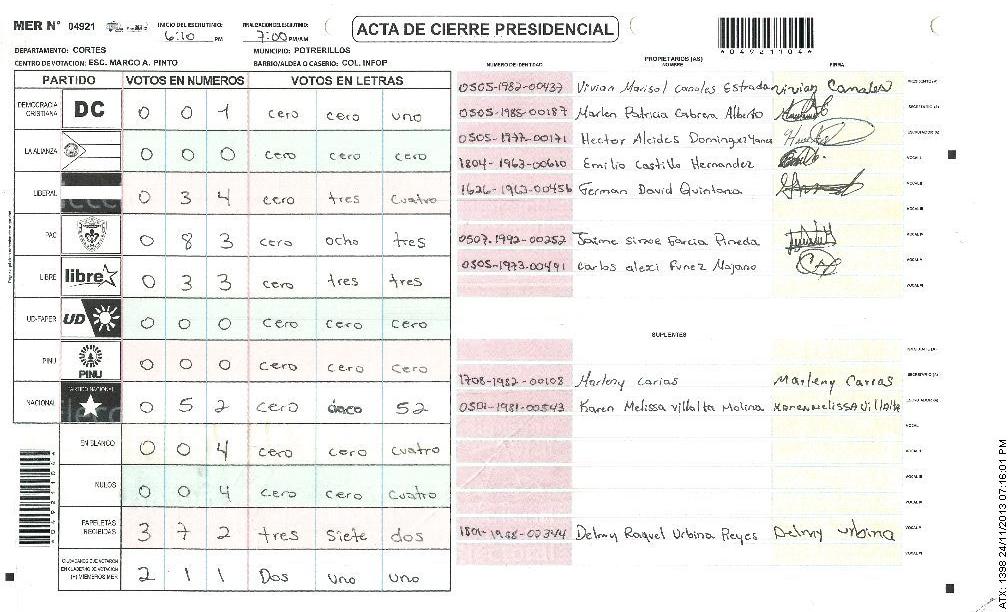 MER N° 04921
INICIO DEL ESCRUTINIO: 6:10 PM
FINALIZACION ESCRUTINIO: 7:00 PM/AM
ACTA DE CIERRE PRESIDENCIAL
04921104
DEPARTAMENTO: CORTES
MUNICIPIO: POTRERILLOS
CENTRO DE VOTACION: ESC. MARCO A. PINTO
BARRIO/ALDEA O CASERIO: COL. INFOP
PARTIDO VOTOS EN NUMEROS VOTOS EN LETRAS
DEMOCRACIA CRISTIANA DC 0 0 1 cero cero uno
LA ALIANZA 0 0 0 cero cero cero
LIBERAL 0 3 4 cero tres cuatro
PAC 0 8 3 cero ocho tres
LIBRE libre 0 3 3 cero tres tres
UD-FAPER UD 0 0 0 cero cero cero
PINU PINU 0 0 0 cero cero cero
NACIONAL PARTIDO NACIONAL 0 5 2 cero cinco 52
EN BLANCO 0 0 4 cero cero cuatro
NULOS 0 0 4 cero cero cuatro
PAPELETAS RECIBIDAS 3 7 2 tres siete dos
CIUDADANOS QUE VOTARON EN CUADERNO DE VOTACION (+) MIEMBROS MER 2 1 1 Dos uno uno
PROPIETARIOS (AS)
NUMERO DE IDENTIDAD NOMBRE FIRMA
0505-1982-00437 Vivian Marisol Canales Estrada vivian Canales PRESIDENTE (A)
0505-1985-00187 Marlen Patricia Cabrera Alberto SECRETARIO (A)
0505-1977-00171 Hector Alcides Dominguez Yanes ESCRUTADOR (A)
1804-1963-00610 Emilio Castillo Hernandez VOCAL I
1626-1962-00456 German David Quintana VOCAL II
VOCAL III
0507-1992-00252 Jaime Simoe Garcia Pineda VOCAL IV
0505-1973-00491 Carlos alexi Funez Majano VOCAL V
VOCAL VI
SUPLENTES
PRESIDENTE (A)
1708-1982-00108 Marleny Carias Marleny Carias SECRETARIO (A)
0501-1981-00543 Karen Melissa Villalta Molina Karen Melissa Villalta ESCRUTADOR (A)
VOCAL I
VOCAL II
VOCAL III
VOCAL IV
1801-1988-02344 Delmy Raquel Urbina Reyes Delmy Urbina VOCAL V
VOCAL VI
04921104
ATX: 1398 24/11/2013 07:16:01 PM